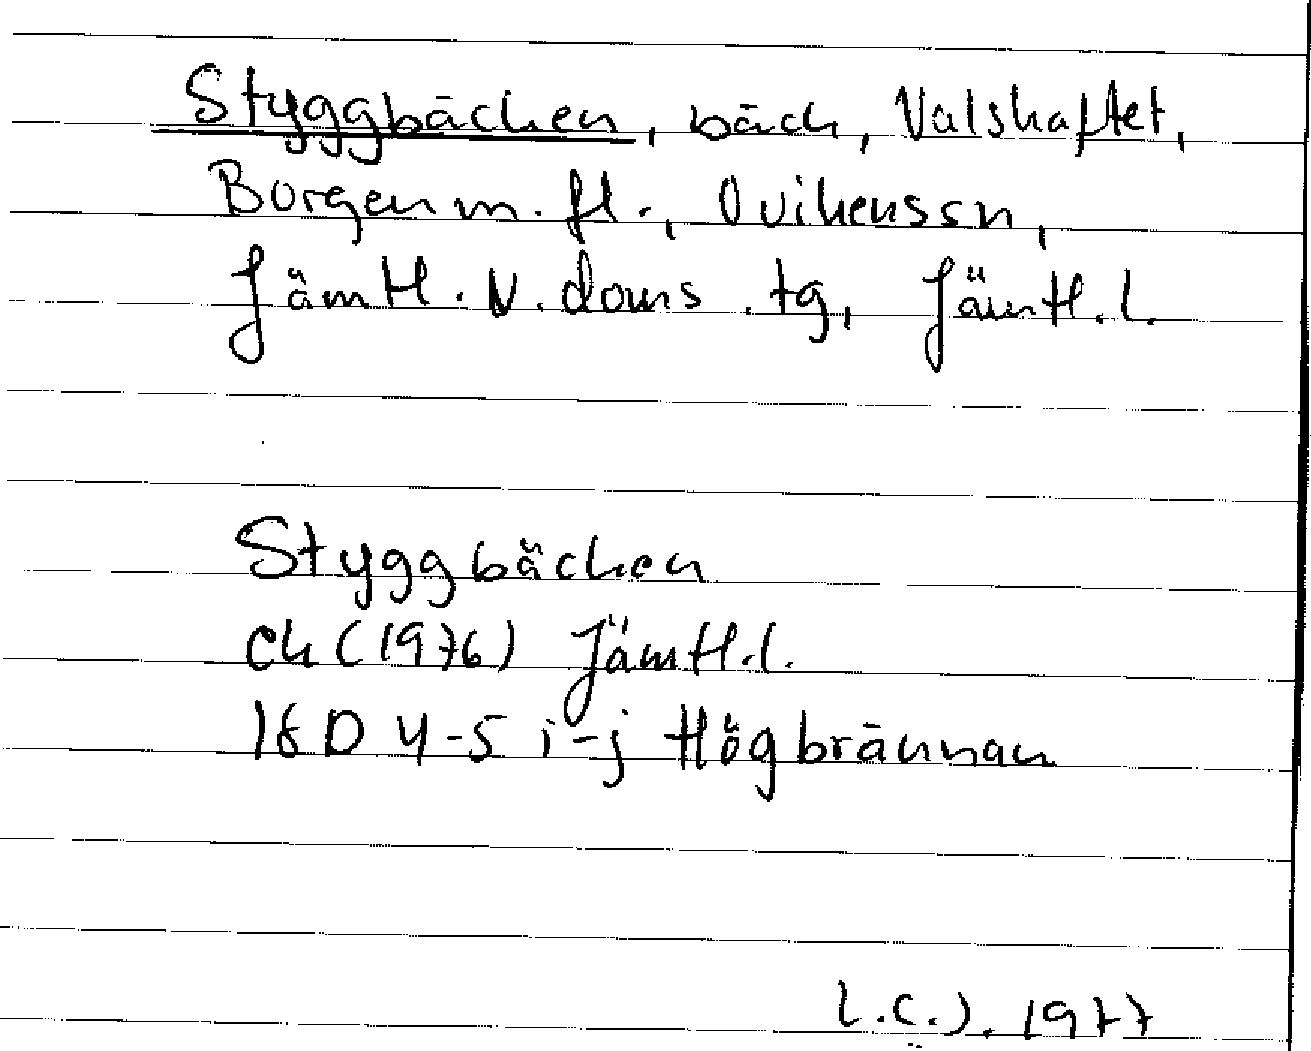 Styggbäcken, bäck, Valskaftet,
Borgen m.fl., Ovikens sn,
Jämtl. V. doms.tg, Jämtl.l.
Styggbäcken
Ek (1976) Jämtl.l.
18D 4-5 i-j Högbrännan
L.C.J. 1977